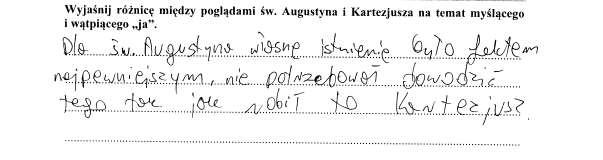 Wyjaśnij różnicę między poglądami św. Augustyna i Kartezjusza na temat myślącego
i wątpiącego „ja”.
Dla św. Augustyna własne istnienie było faktem
najpewniejszym, nie potrzebował dowodzić
tego tak jak robił to Kartezjusz.